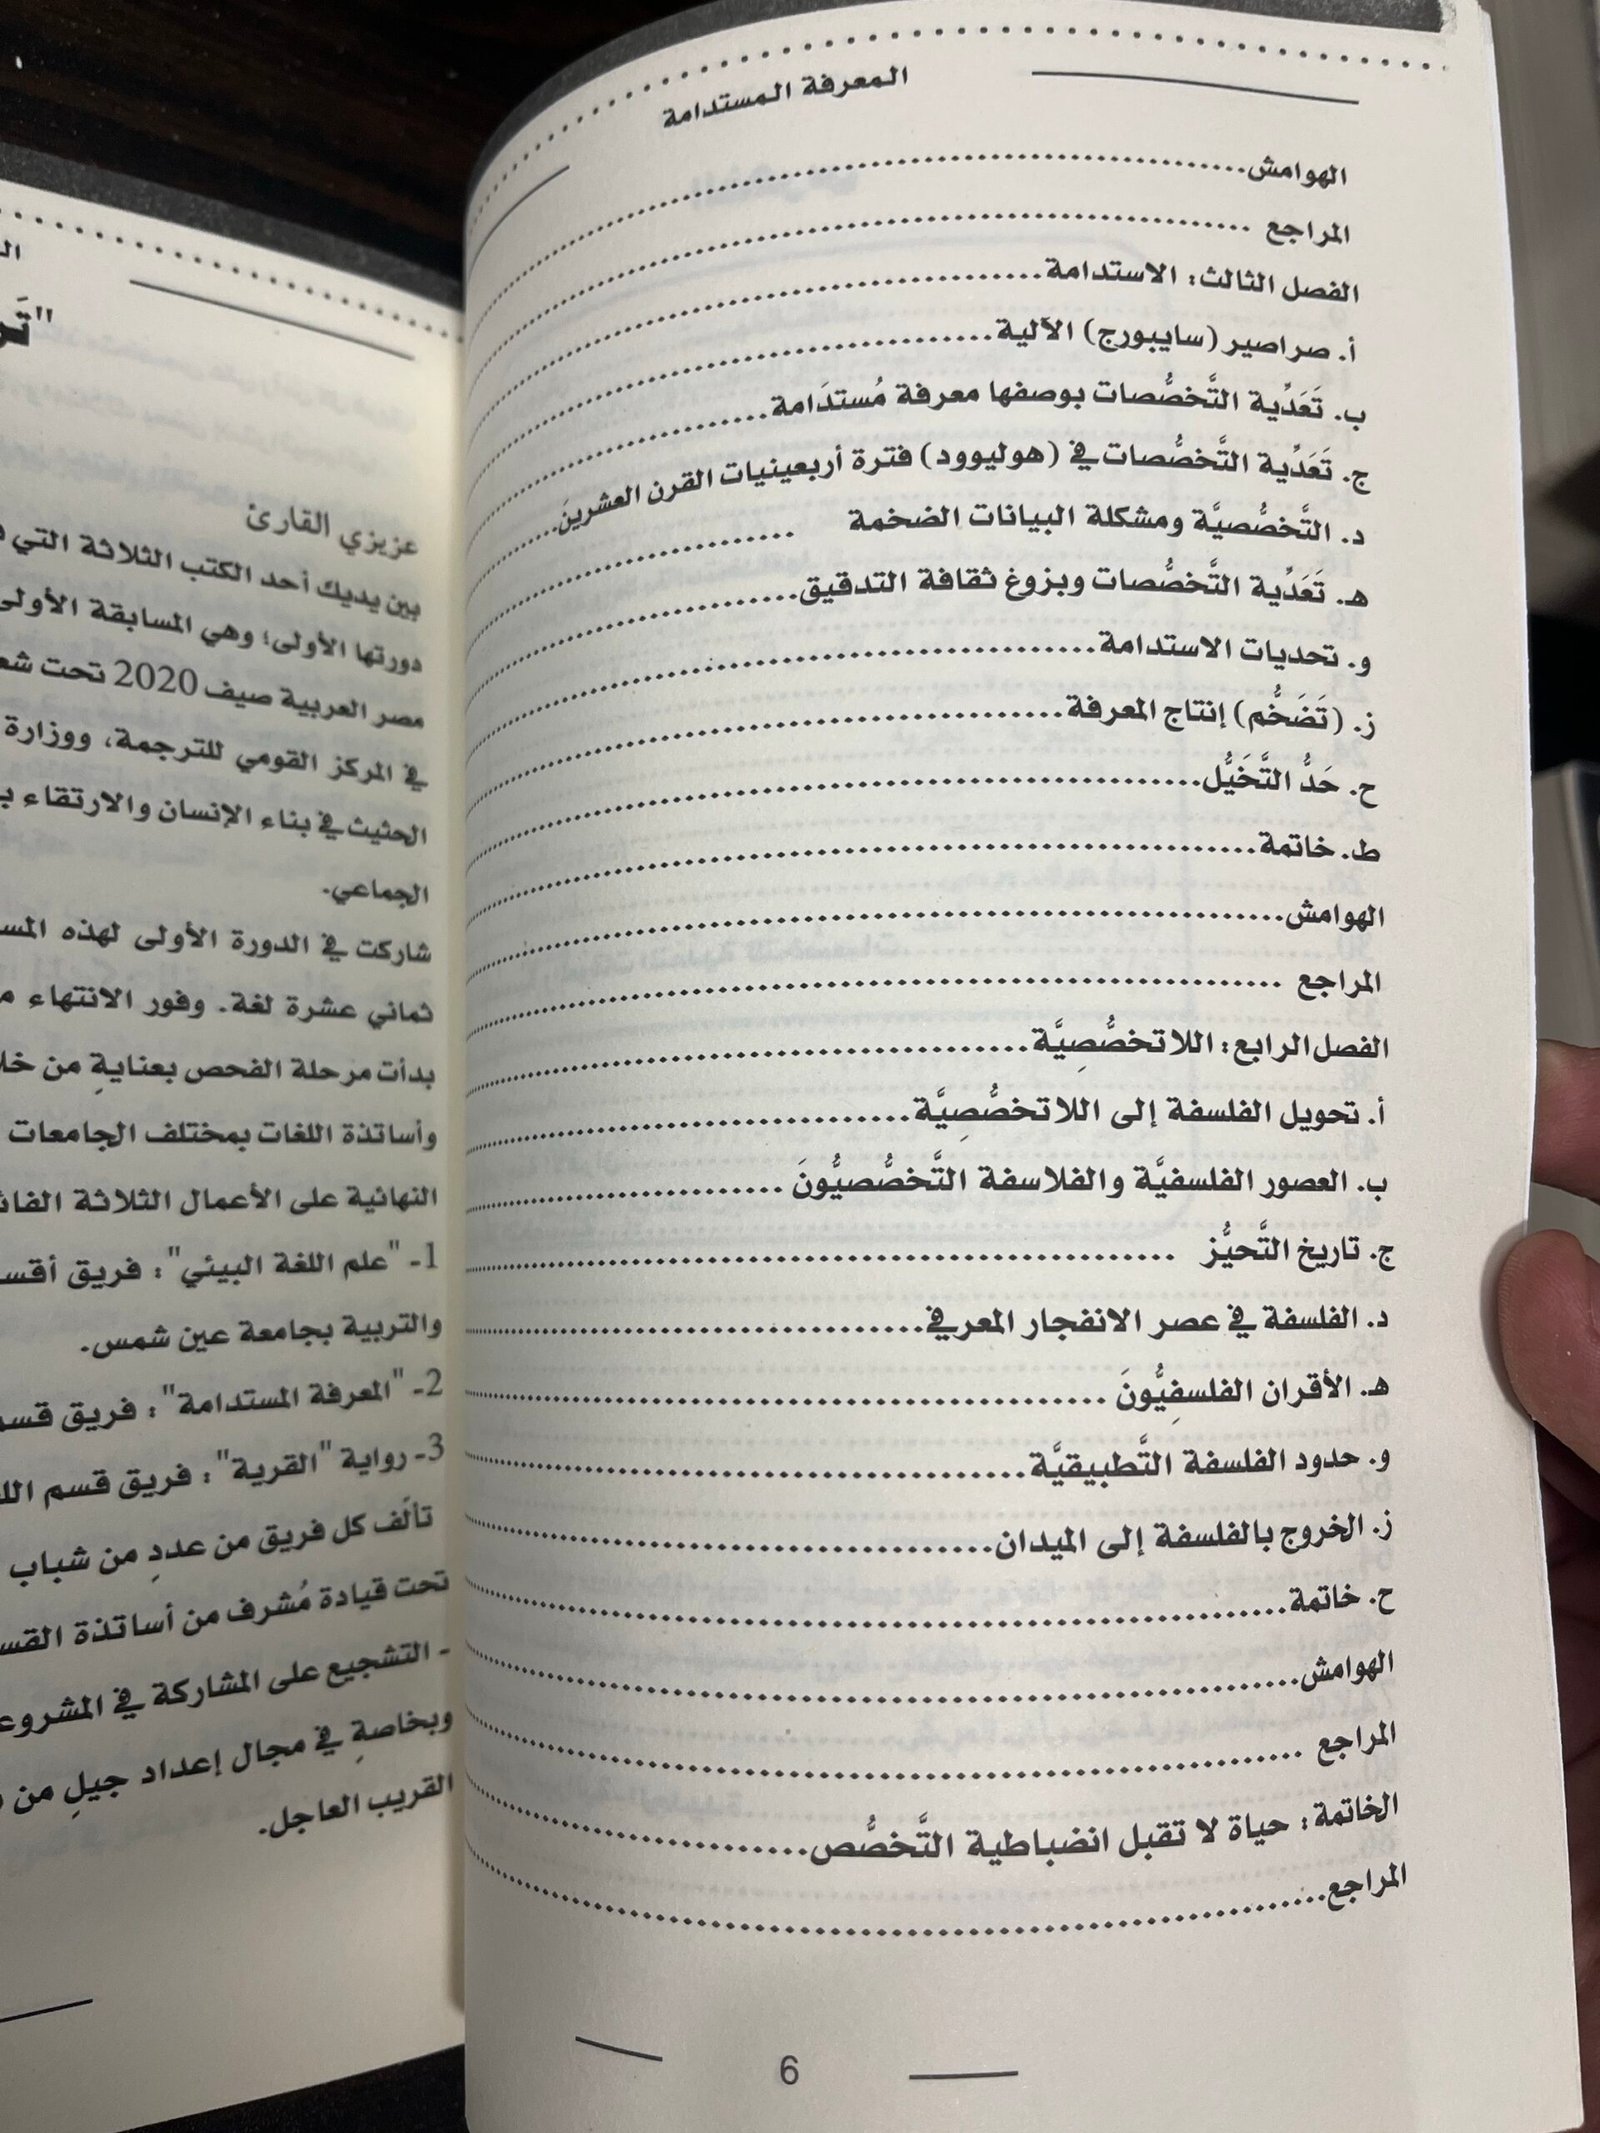 المعرفة المستدامة
الهوامش
المراجع
الفصل الثالث: الاستدامة
أ. صراصير (سايبورج) الآلية
ب. تَعَدِّية التَّخصُّصات بوصفها معرفة مُستدَامة
ج. تَعَدِّية التَّخصُّصات في (هوليوود) فترة أربعينيات القرن العشرينَ
د. التَّخصُّصيَّة ومشكلة البيانات الضخمة
هـ. تَعَدِّية التَّخصُّصات وبزوغ ثقافة التدقيق
و. تحديات الاستدامة
ز. (تَضَخُّم) إنتاج المعرفة
ح. حَدُّ التَّخَيُّل
ط. خاتمة
الهوامش
المراجع
الفصل الرابع: اللاتخصُّصِيَّة
أ. تحويل الفلسفة إلى اللاتخصُّصِيَّة
ب. العصور الفلسفيَّة والفلاسفة التَّخصُّصيُّونَ
ج. تاريخ التَّحيُّز
د. الفلسفة في عصر الانفجار المعرفي
هـ. الأقران الفلسفِيُّونَ
و. حدود الفلسفة التَّطبيقيَّة
ز. الخروج بالفلسفة إلى الميدان
ح. خاتمة
الهوامش
المراجع
الخاتمة: حياة لا تقبل انضباطية التَّخصُّص
المراجع
6
عزيزي القارئ
بين يديك أحد الكتب الثلاثة التي
دورتها الأولى؛ وهي المسابقة الأولى
مصر العربية صيف 2020 تحت
في المركز القومي للترجمة، ووزارة
الحثيث في بناء الإنسان والارتقاء
الجماعي.
شاركت في الدورة الأولى لهذه
ثماني عشرة لغة. وفور الانتهاء
بدأت مرحلة الفحص بعنايةٍ من
وأساتذة اللغات بمختلف الجامعات
النهائية على الأعمال الثلاثة
1- "علم اللغة البيئي": فريق
والتربية بجامعة عين شمس.
2- "المعرفة المستدامة": فريق
3- رواية "القرية": فريق قسم
تألف كل فريق من عددٍ من شباب
تحت قيادة مُشرف من أساتذة
- التشجيع على المشاركة في
وبخاصةٍ في مجال إعداد جيلٍ من
القريب العاجل.